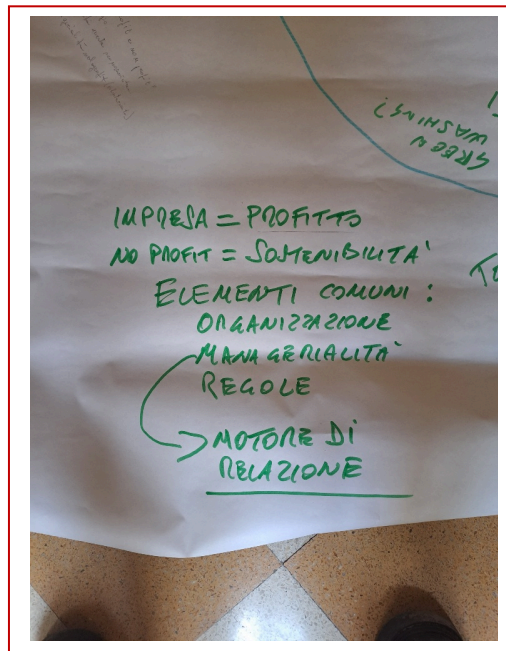 GREEN
WASHING?
IMPRESA = PROFITTO
NO PROFIT = SOSTENIBILITA'
ELEMENTI COMUNI:
ORGANIZZAZIONE
MANAGERIALITA'
REGOLE
MOTORE DI
RELAZIONE